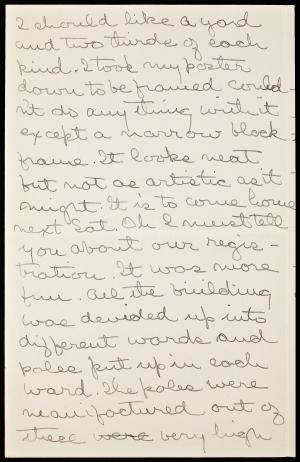 I should like a yard
and two thirds of each
kind. I took my poster
down to be framed could-
n't do anything with it
except a narrow black
frame. It looks neat
but not as artistic as it
might. It is to come home
next Sat. Oh I must tell
you about our regis-
tration. It was more
fun. All the building
was devided up into
different wards and
poles put up in each
ward. The poles were
manifactured out of
these were very high